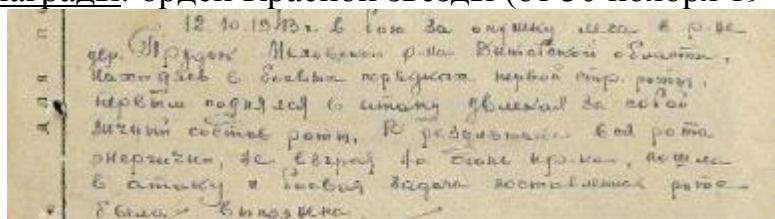 награды: орден Красной звезды (от 30 ноября 19
12.10.1943г. в бою за опушку леса в р-не
дер. Лиозненского р-на Витебской области,
находясь в боевых порядках первой стр. роты,
первым поднялся в атаку увлекая за собой
личный состав роты. В результате вся рота
энергично, не взирая на огонь пр-ка, пошла
в атаку и боевая задача поставленная роте
была выполнена.